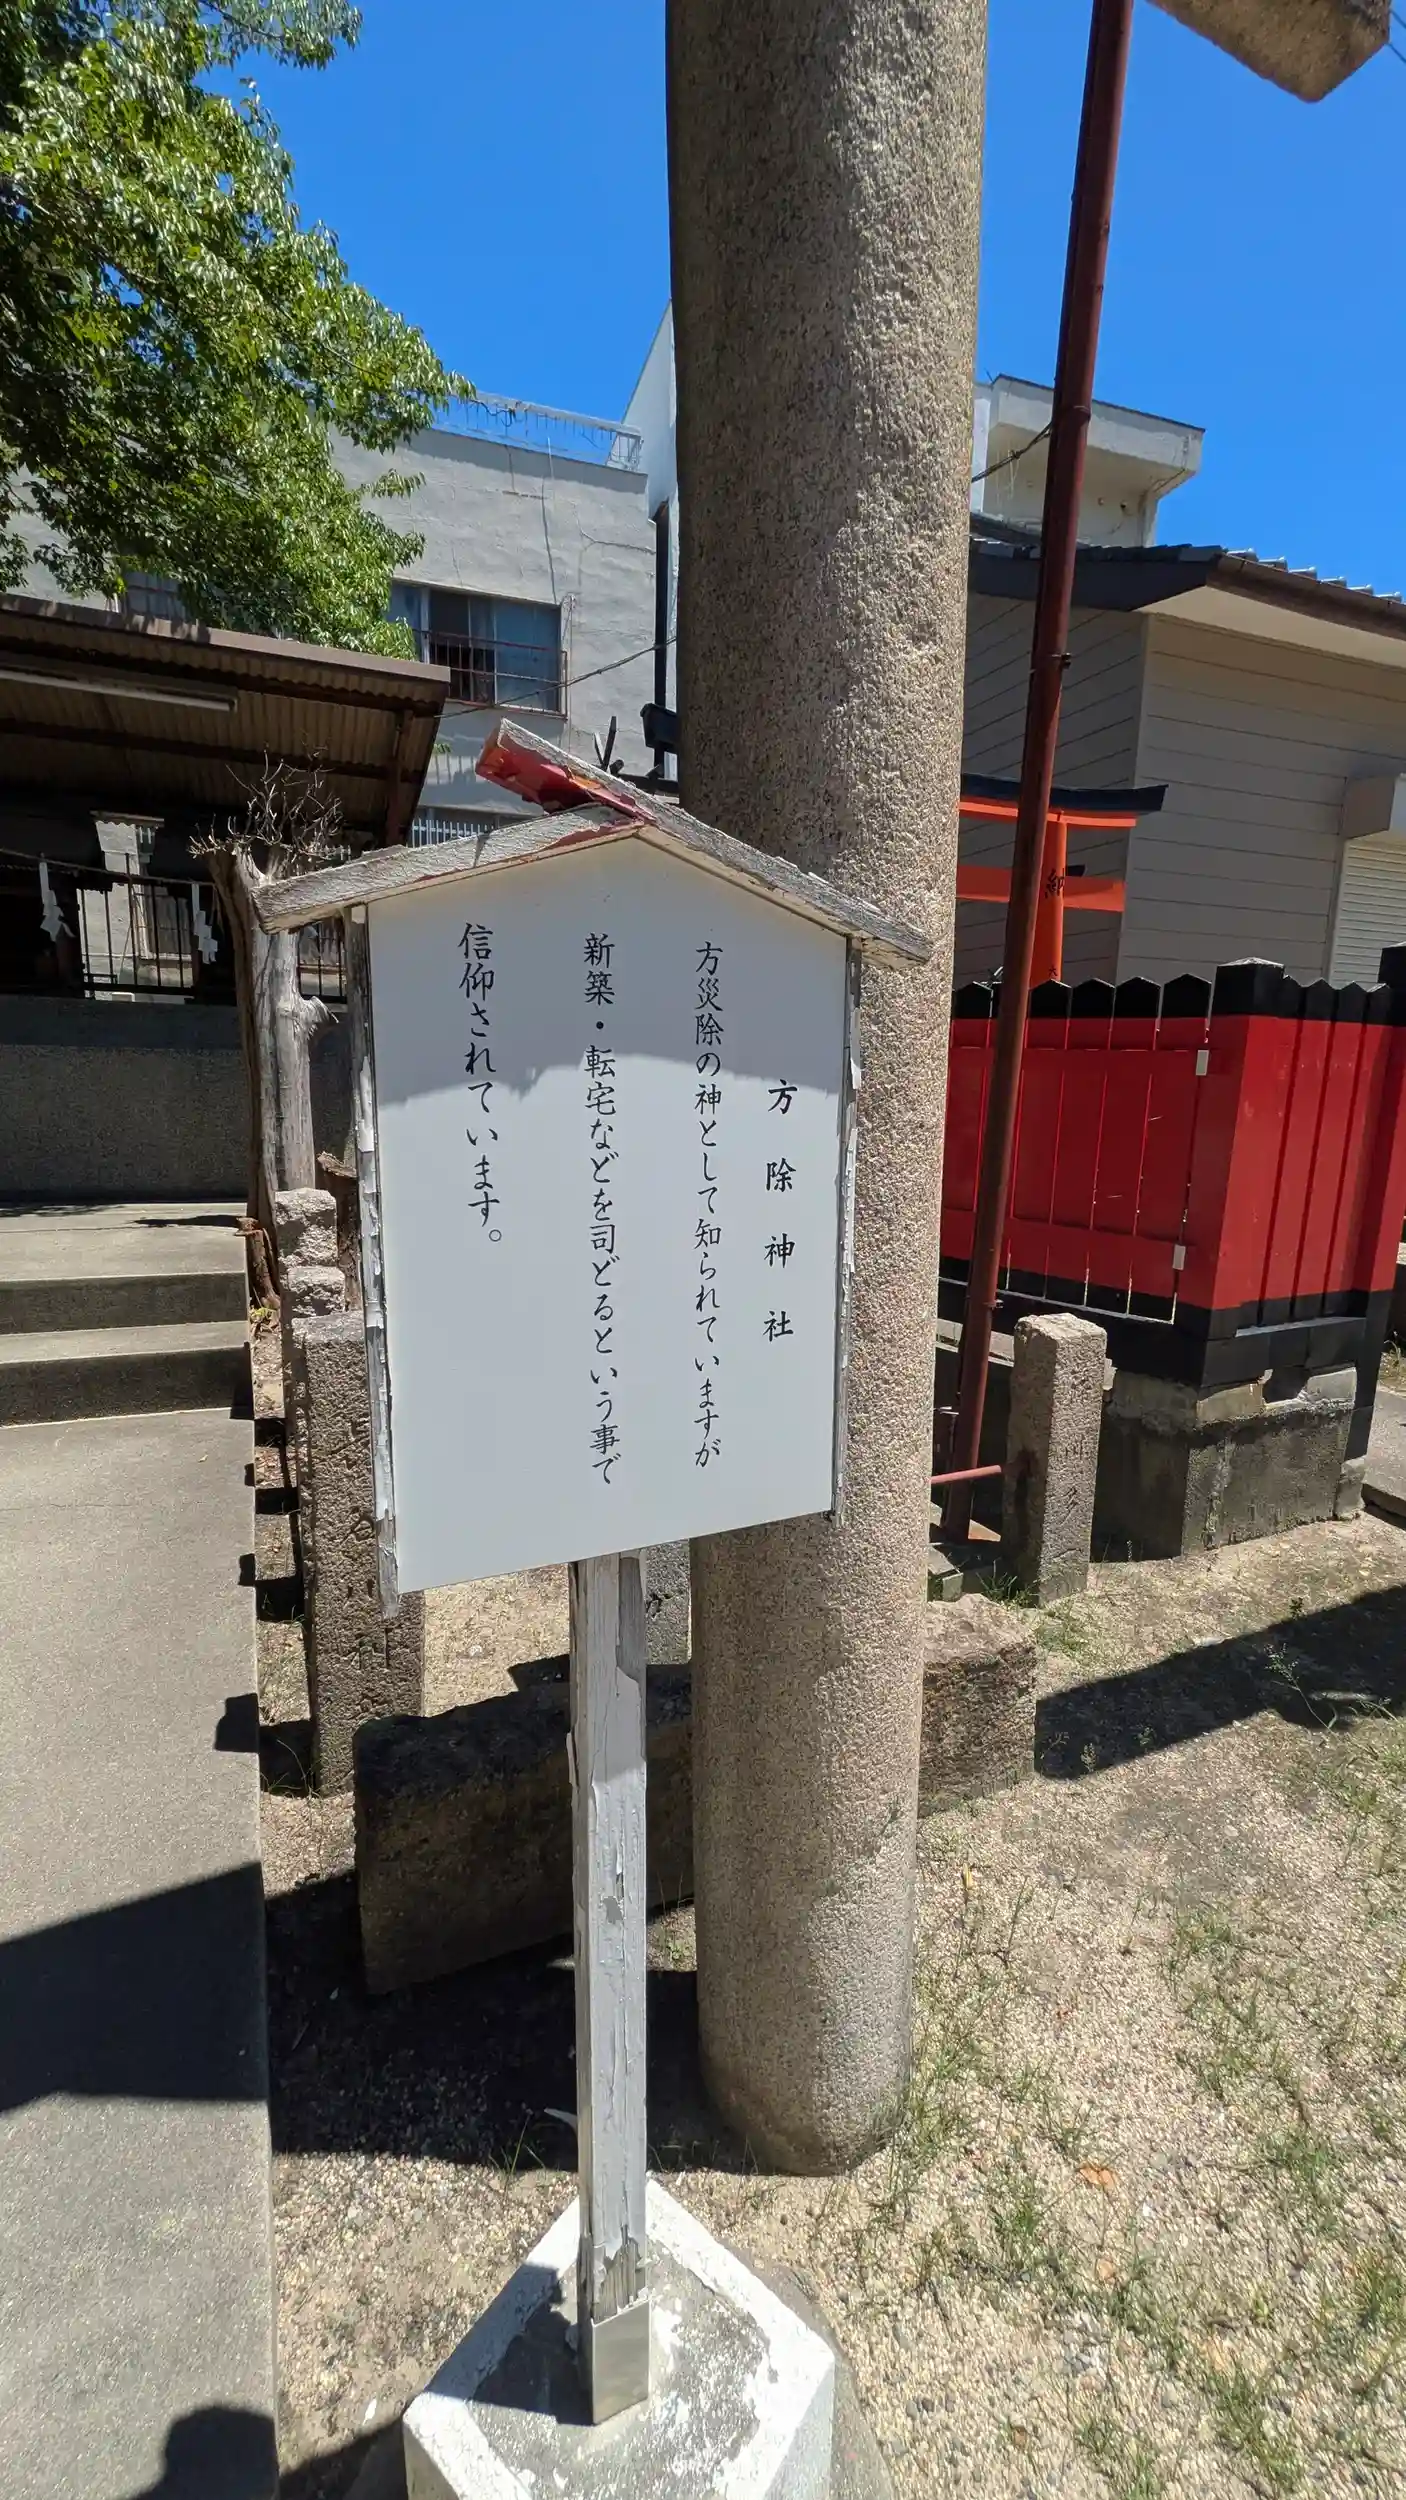 方除神社
方災除の神として知られていますが
新築・転宅などを司どるという事で
信仰されています。
納
大